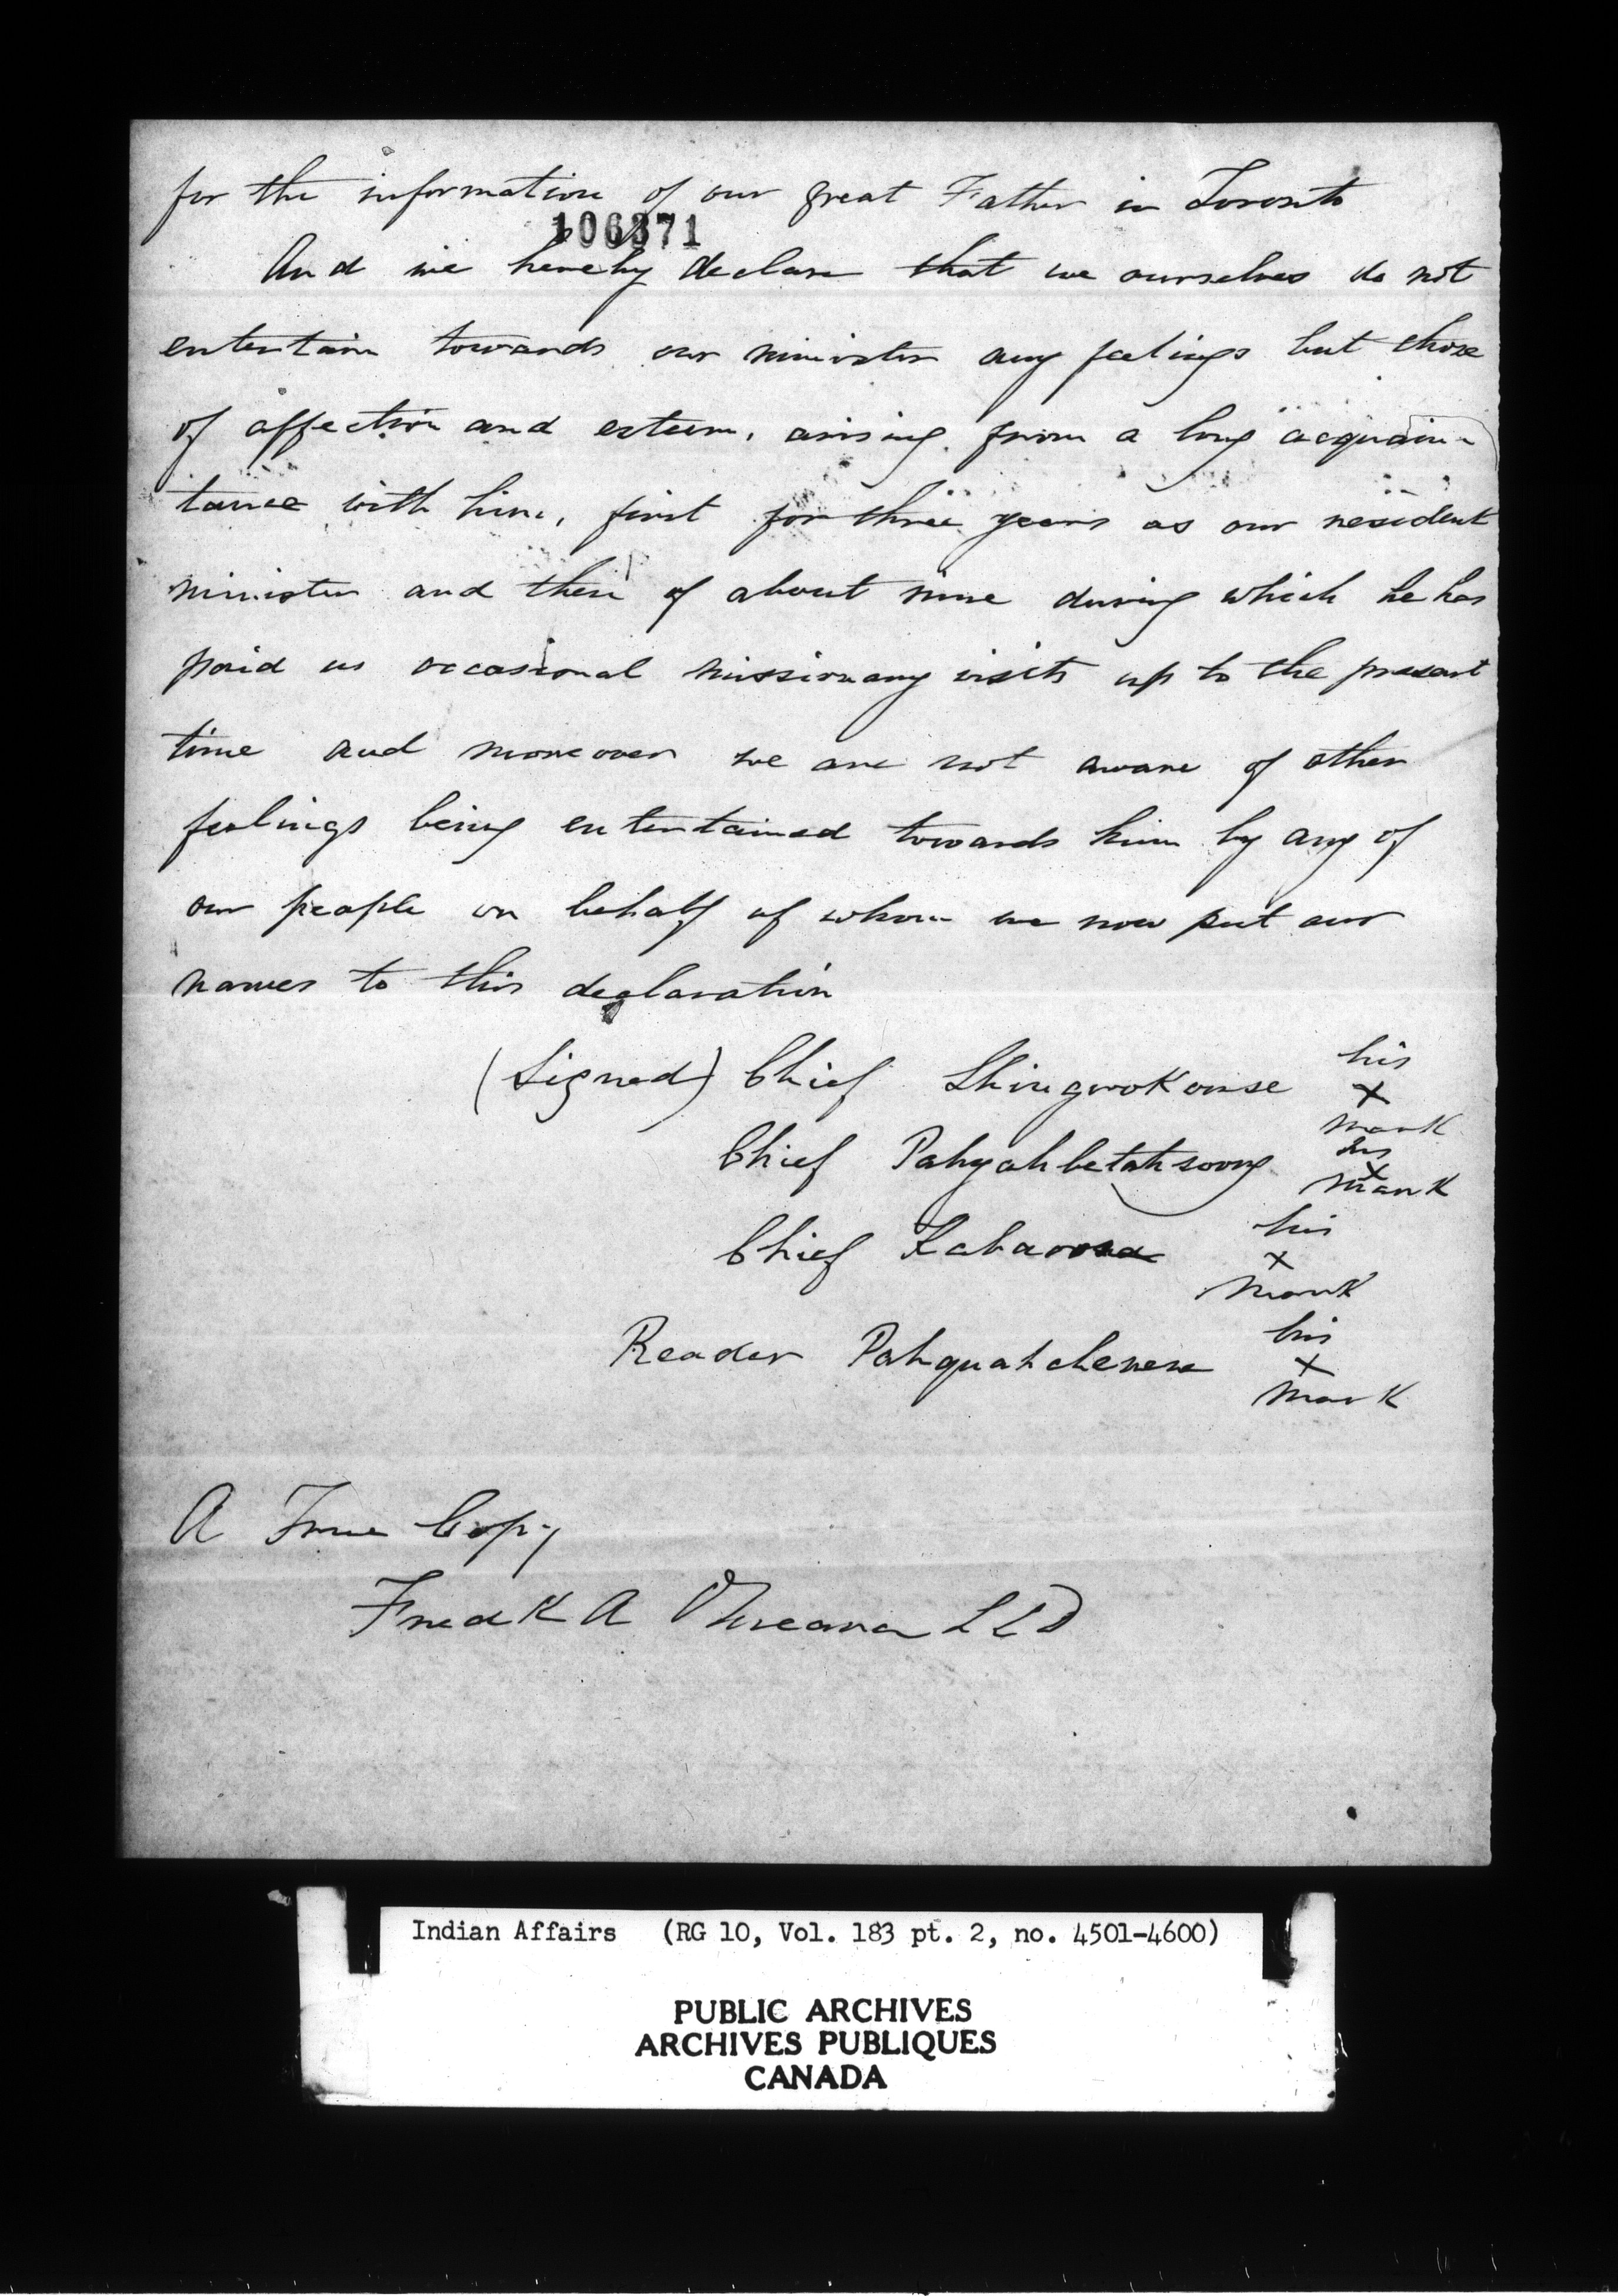 for the information of our great Father in Toronto
106371
And we hereby declare that we ourselves do not
entertain towards our minister any feelings but those
of affection and esteem, arising from a long acquain-
tance with him, first for three years as our resident
minister and then of about nine during which he has
paid us occasional missionary visits up to the present
time and moreover we are not aware of other
feelings being entertained towards him by any of
our people on behalf of whom we now put our
names to this declaration
(Signed) Chief Shingwokonse his
x
mark
Chief Pahyahbetahsoong his
x
mark
Chief his
x
mark
Reader Pahquahchenene his
x
mark
A True Copy
Fredk A O'Meara LLD
Indian Affairs (RG 10, Vol. 183 pt. 2, no. 4501-4600)
PUBLIC ARCHIVES
ARCHIVES PUBLIQUES
CANADA